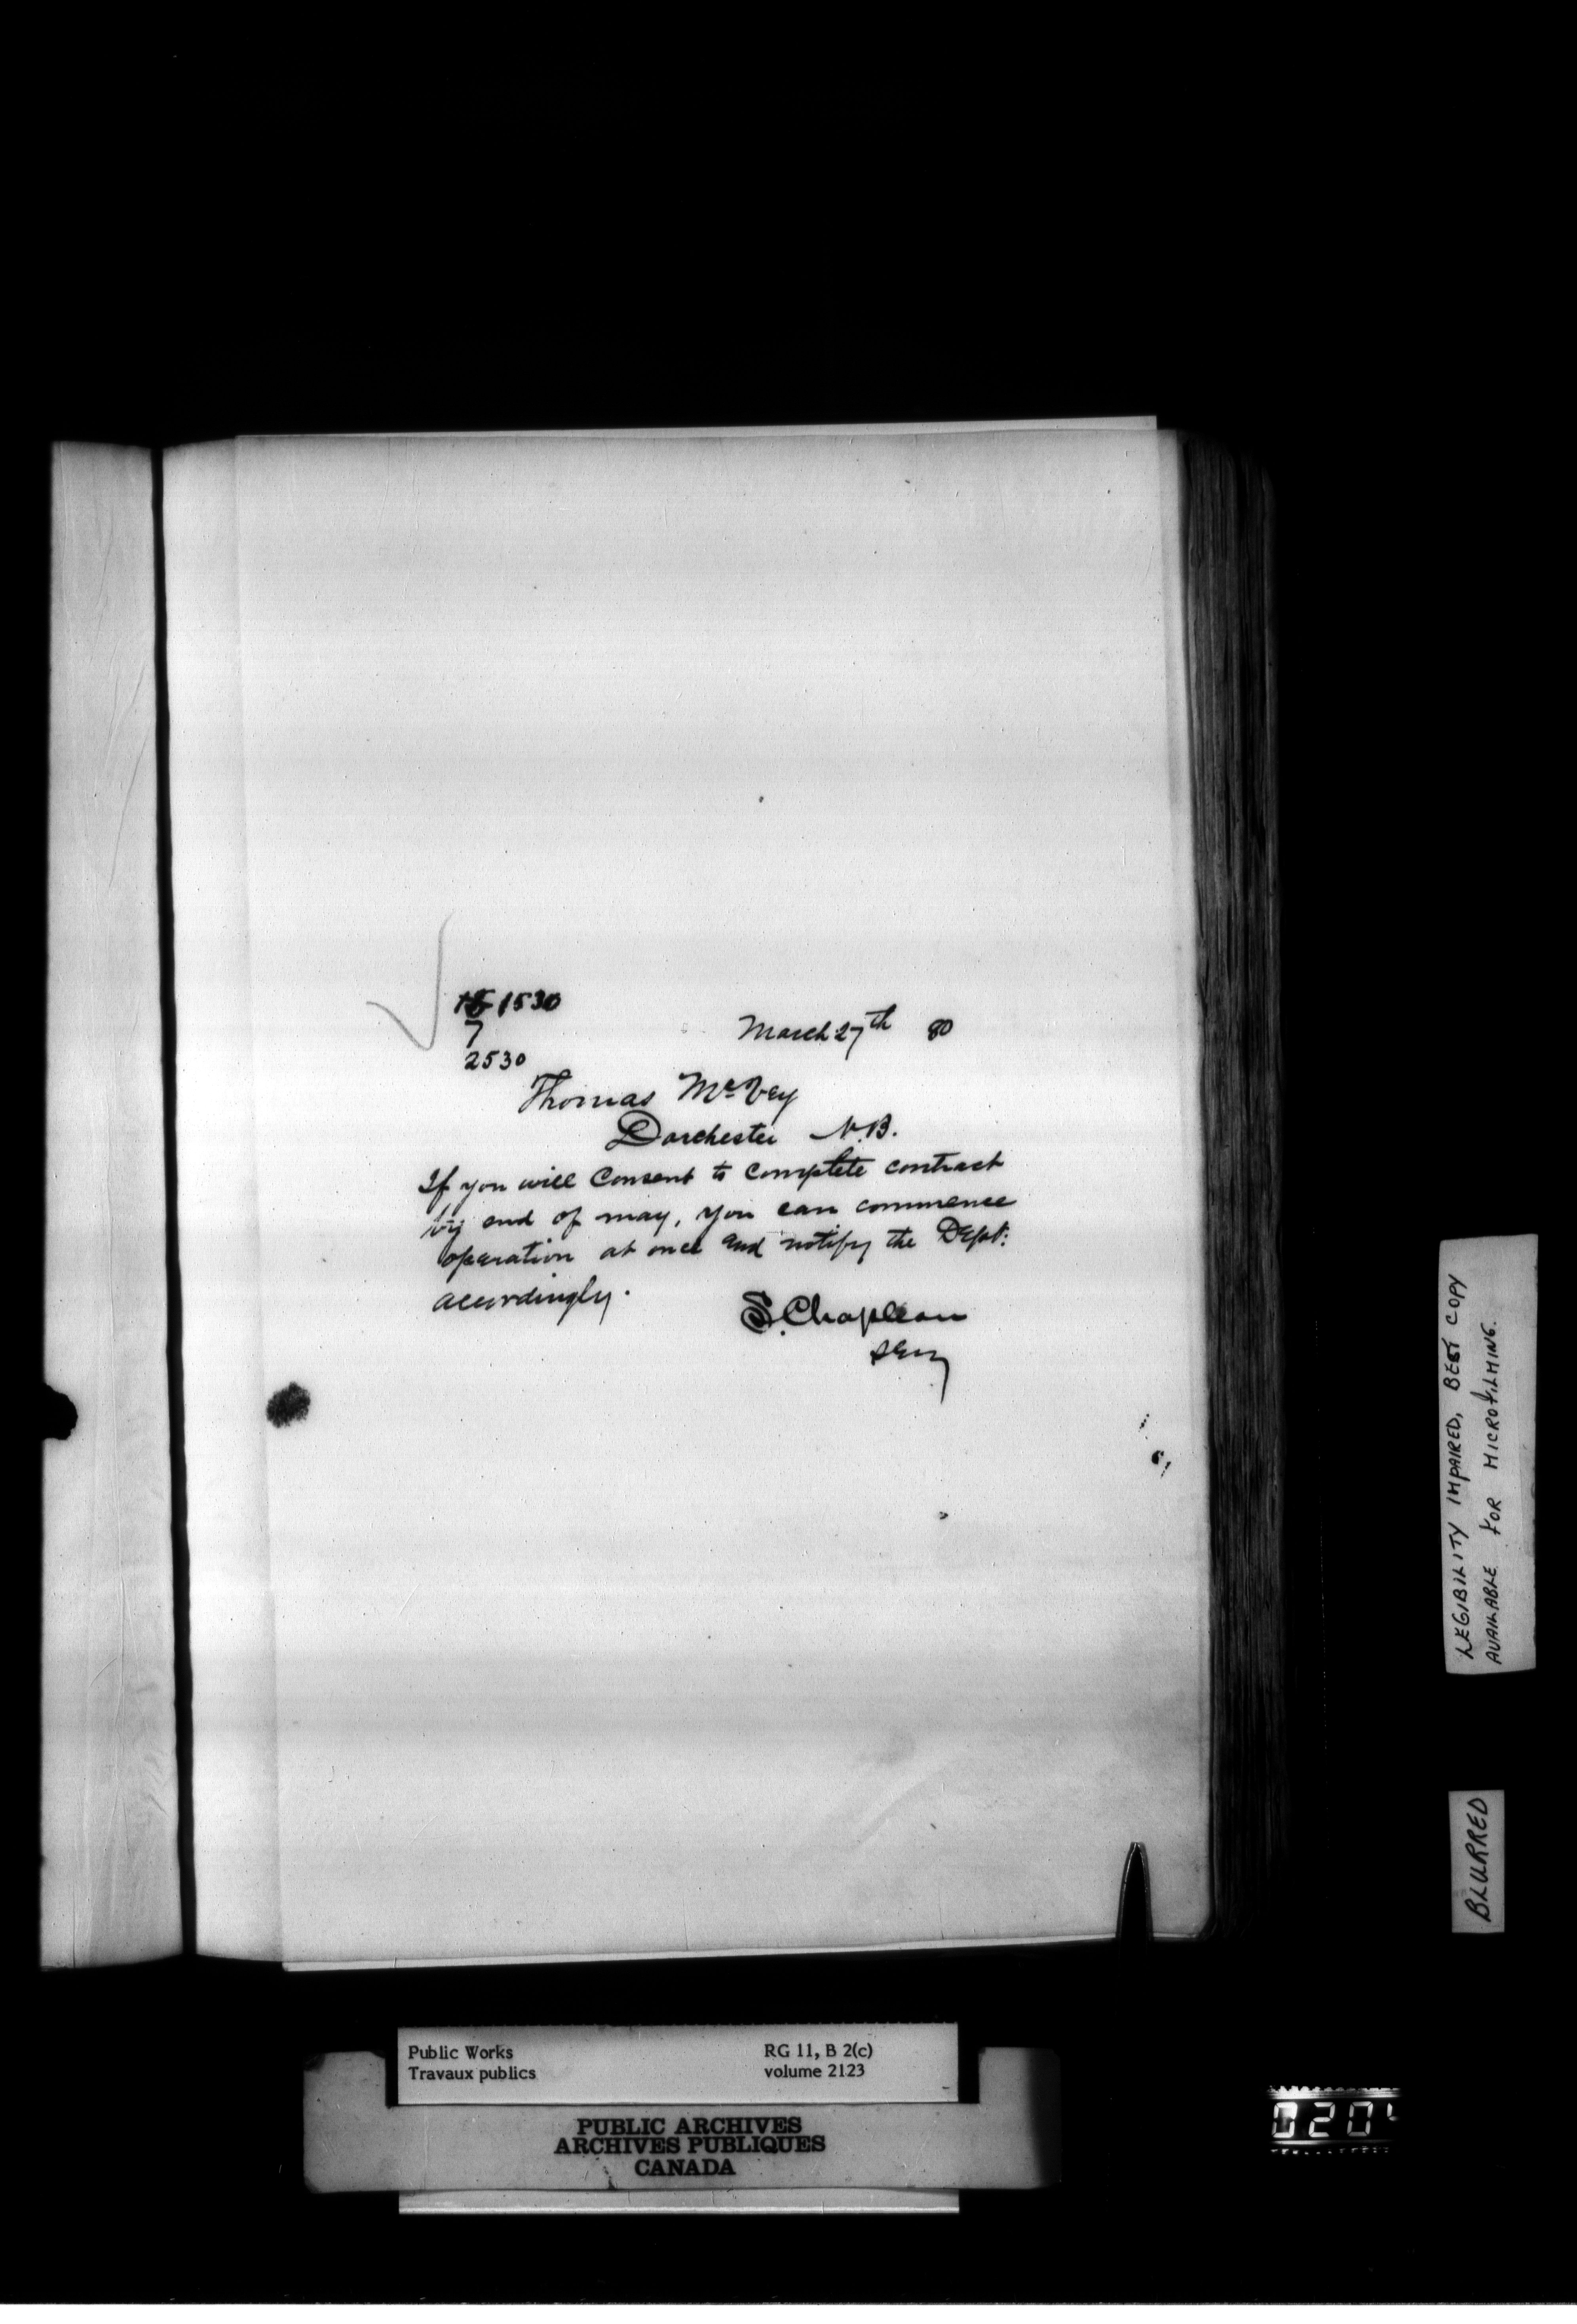 1530
7
2530
March 27th 80
Thomas McVey
Dorchester N.B.
If you will Consent to Complete contract
by end of may, you can commence
operation at once and notify the Dept:
accordingly.
S. Chapleau
Secy
LEGIBILITY IMPAIRED, BEST COPY
AVAILABLE FOR MICROFILMING.
BLURRED
Public Works RG 11, B 2(c)
Travaux publics volume 2123
PUBLIC ARCHIVES
ARCHIVES PUBLIQUES
CANADA
020